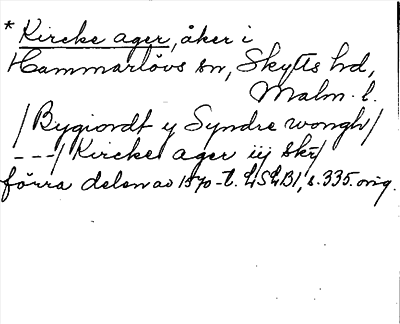 * Kircke ager, åker i
Hammarlövs sn, Skytts hd,
Malm. l.
/Bygiordt y Syndre wongh/
---/Kircke ager iij skr/
förra delen av 1570-t. LSLB1, s. 335. orig.